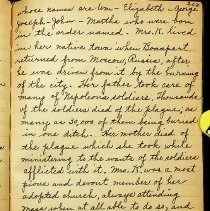 202
whose names are Wm - Elizabeth - George
Joseph - John - Martha who were born
in the order named. Mrs. K. lived
in her native town when Bonapart
retired from Moscow, Russia, after
he was driven from it by the burning
of the city. Her father took care of
many of Napoleons soldiers. Thousands
of the soldiers died of the plague, as
many as 30,000 of them being buried
in one ditch. Her mother died of
the plague which she took while
ministering to the wants of the soldiers
afflicted with it. Mrs. K. was a most
pious and devout member of her
adopted church, always attending
mass when at all able to do so, and